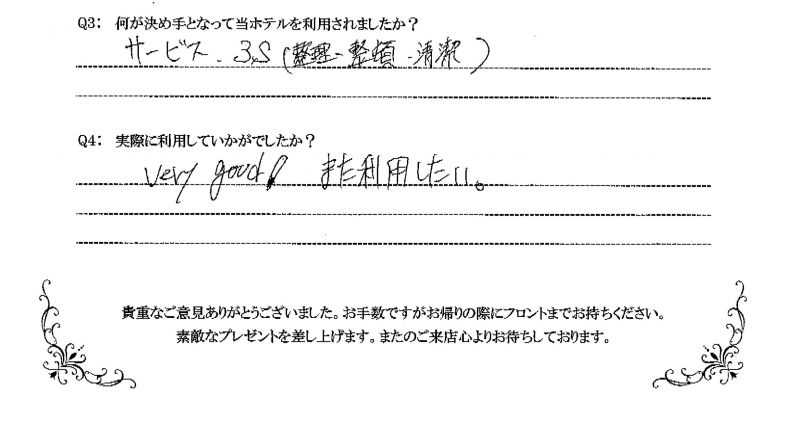 Q3: 何が決め手となって当ホテルを利用されましたか？
サービス、3S（整理・整頓・清潔）
Q4: 実際に利用していかがでしたか？
very good! また利用したい。
貴重なご意見ありがとうございました。お手数ですがお帰りの際にフロントまでお持ちください。
素敵なプレゼントを差し上げます。またのご来店心よりお待ちしております。